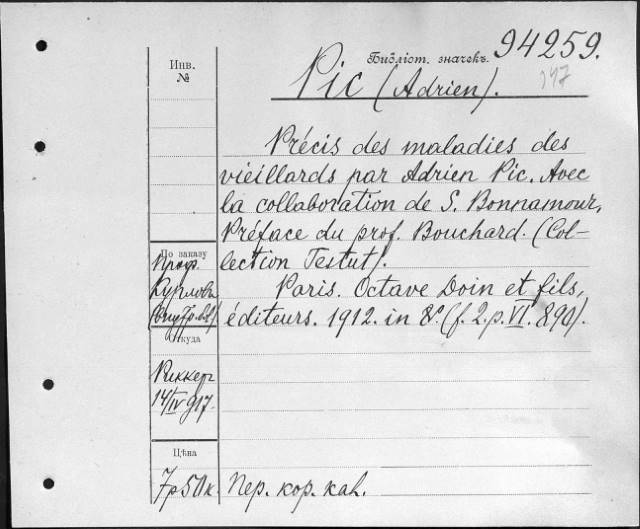 Библіот. значекъ. 94259.
Инв. №
147
Pic (Adrien).
Précis des maladies des
vieillards par Adrien Pic. Avec
la collaboration de S. Bonnamour,
Préface du prof. Bouchard. (Col-
lection Testut).
Paris. Octave Doin et fils,
éditeurs. 1912. in 8º. (f. 2. p. VI. 890).
По заказу
Проф.
Курлова
Откуда
Риккеръ
14/IV 917.
Цѣна
7р50к.
Пер. кор. кал.